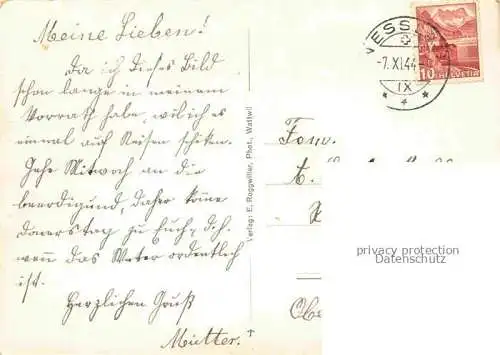 Meine Lieben!
Da ich dieses Bild
schon lange in meinem
Vorrath habe, wil ich es
einmal auf Reisen schiken.
Gehe Mitwoch an die
beerdigund, daher köne
donerstag zu Euch, d.h.
wenn das Weter ordentlich
ist.
Herzlichen Gruß
Mutter.
Verlag: E. Roggwiller, Phot., Wattwil
-7.XI.44
IX
10 HELVETIA
Fam.
privacy protection
Datenschutz